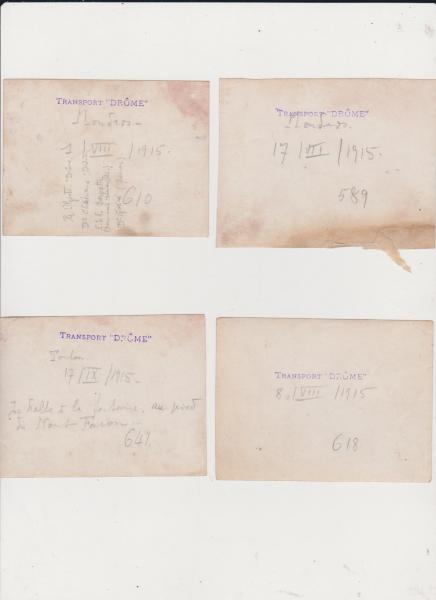 TRANSPORT "DRÔME"
Moudros -
1/VIII/1915.
610
TRANSPORT "DRÔME"
Moudros.
17/VII/1915.
589
TRANSPORT "DRÔME"
Toulon
17/IX/1915-
Halte à la fontaine, au pied
du Mont Faron -
647.
TRANSPORT "DRÔME"
8./VIII/1915
618